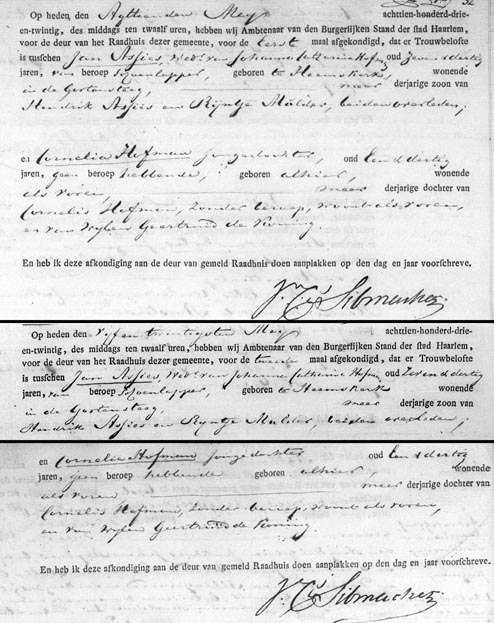 Op heden den Agttienden Mey achttien-honderd-drie-
en-twintig, des middags ten twaalf uren, hebben wij Ambtenaar van den Burgerlijken Stand der stad Haarlem,
voor de deur van het Raadhuis dezer gemeente, voor de eerste maal afgekondigd, dat er Trouwbelofte
is tusschen Jan Assies, Wedr van Johanna Catharina Hofm oud Zeven & dertig
jaren, van beroep Schoenlapper, geboren te Heemskerk, wonende
in de Gortensteeg, meer derjarige zoon van
Hendrik Assies en Rijntje Mulder, beiden overleden;
en Cornelia Hofman jongedochter, oud Een & dertig
jaren, geen beroep hebbende, geboren alhier, wonende
als voren, meer derjarige dochter van
Cornelis Hofman, zonder beroep, woont als voren,
en van wijlen Geertruid de Koning.
En heb ik deze afkondiging aan de deur van gemeld Raadhuis doen aanplakken op den dag en jaar voorschreve.
Sibmacher
Op heden den vijf en twintigsten Mey achttien-honderd-drie-
en-twintig, des middags ten twaalf uren, hebben wij Ambtenaar van den Burgerlijken Stand der stad Haarlem,
voor de deur van het Raadhuis dezer gemeente, voor de tweede maal afgekondigd, dat er Trouwbelofte
is tusschen Jan Assies, Wedr van Johanna Catharina Hofm oud Zeven & dertig
jaren, van beroep Schoenlapper, geboren te Heemskerk wonende
in de Gortensteeg, meer derjarige zoon van
Hendrik Assies en Rijntje Mulder, beiden overleden;
en Cornelia Hofman jongedochter oud Een & dertig
jaren, geen beroep hebbende geboren alhier, wonende
als voren meer derjarige dochter van
Cornelis Hofman, zonder beroep, woont als voren,
en van wijlen Geertruid de Koning.
En heb ik deze afkondiging aan de deur van gemeld Raadhuis doen aanplakken op den dag en jaar voorschreve.
Sibmacher